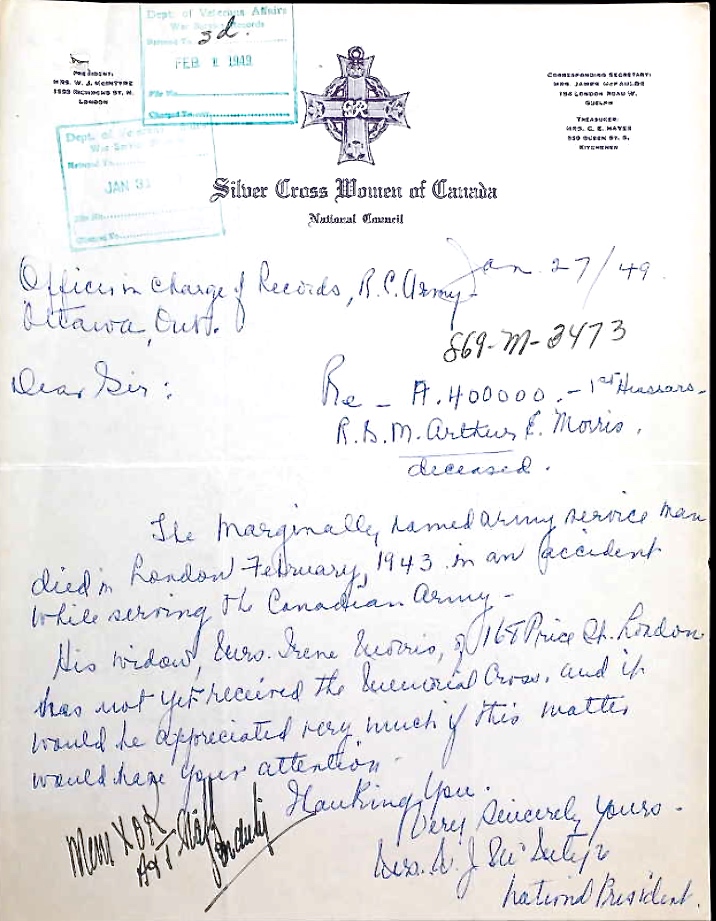 Dept. of Veterans Affairs
War Service Records
Returned To 3d.
FEB 1 1949
File No.
Charged To
Dept. of Veterans
War Service
Returned To
JAN 31
File No.
Charged To
PRESIDENT:
MRS. W. J. McINTYRE
LONDON
CORRESPONDING SECRETARY:
MRS. JAMES
LONDON ROAD W.
GUELPH
TREASURER:
MRS. C. E. HAYES
QUEEN ST. S.
KITCHENER
GRI
Silver Cross Women of Canada
National Council
Jan. 27/49.
Officer in Charge of Records, R.C. Army
Ottawa, Ont.
869-M-3473
Dear Sir:
Re - A. 400000. - 1st Hussars -
Arthur E. Morris,
deceased.
The marginally named army service man
died in London February, 1943 in an accident
while serving the Canadian Army -
His widow, Mrs. Irene Morris, of 168 Price St. London
has not yet received the Memorial Cross, and it
would be appreciated very much if this matter
would have your attention.
Thanking You.
Very Sincerely Yours -
Mrs. W. J. McIntyre
National President.
Mem X